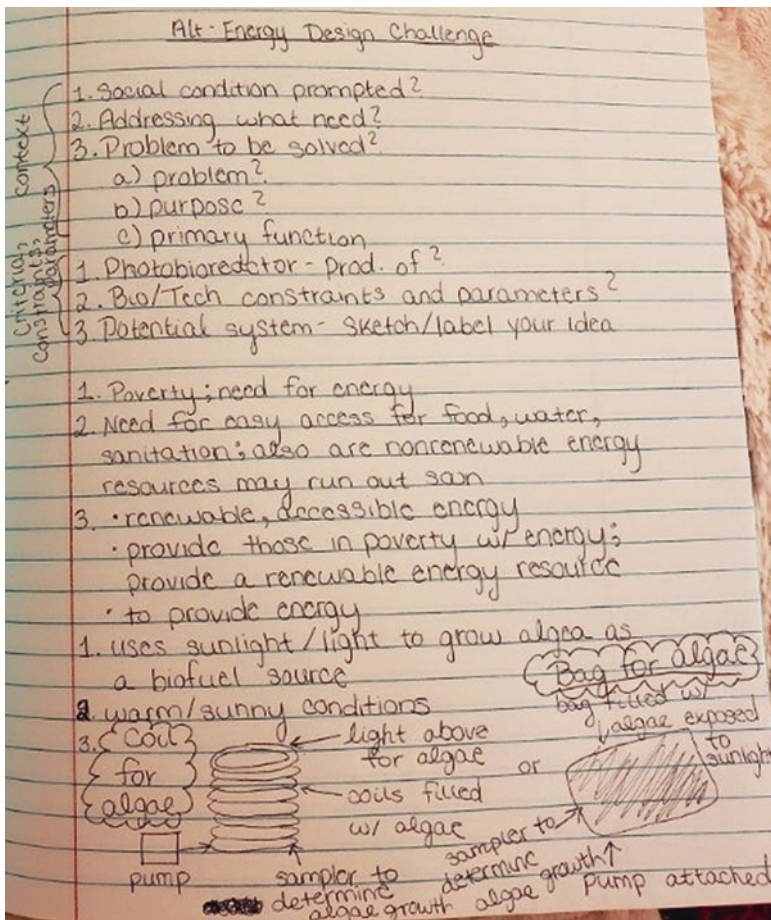 Alt-Energy Design Challenge
Criteria, context
constraints, parameters
1. Social condition prompted?
2. Addressing what need?
3. Problem to be solved?
a) problem?
b) purpose?
c) primary function
1. Photobioreactor - Prod. of?
2. Bio/Tech constraints and parameters?
3. Potential system - sketch/label your idea
1. Poverty; need for energy
2. Need for easy access for food, water,
sanitation; also are nonrenewable energy
resources may run out soon
3. • renewable, accessible energy
• provide those in poverty w/ energy;
provide a renewable energy resource
• to provide energy
1. uses sunlight/light to grow algea as
a biofuel source
2. warm/sunny conditions
3. Coil
for
algae
light above
for algae
coils filled
w/ algae
pump
sampler to
determine
algae growth
or
Bag for algae
bag filled w/
algae exposed
to
sunlight
sampler to
determine
algae growth
pump attached